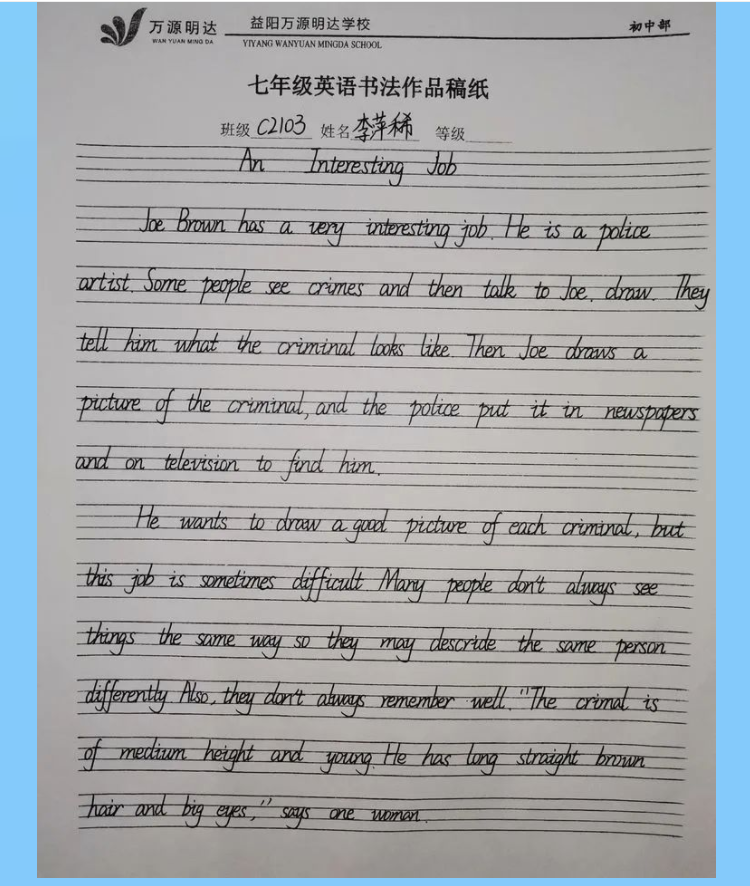 万源明达
WAN YUAN MING DA
益阳万源明达学校
YIYANG WANYUAN MINGDA SCHOOL
初中部
七年级英语书法作品稿纸
班级 C2103 姓名 李萍稀 等级
An Interesting Job
Joe Brown has a very interesting job. He is a police
artist. Some people see crimes and then talk to Joe. draw. They
tell him what the criminal looks like. Then Joe draws a
picture of the criminal, and the police put it in newspapers
and on television to find him.
He wants to draw a good picture of each criminal, but
this job is sometimes difficult Many people don't always see
things the same way so they may descride the same person
differently Also, they don't always remember well. "The crimal is
of medium height and young. He has long straight brown
hair and big eyes," says one woman.